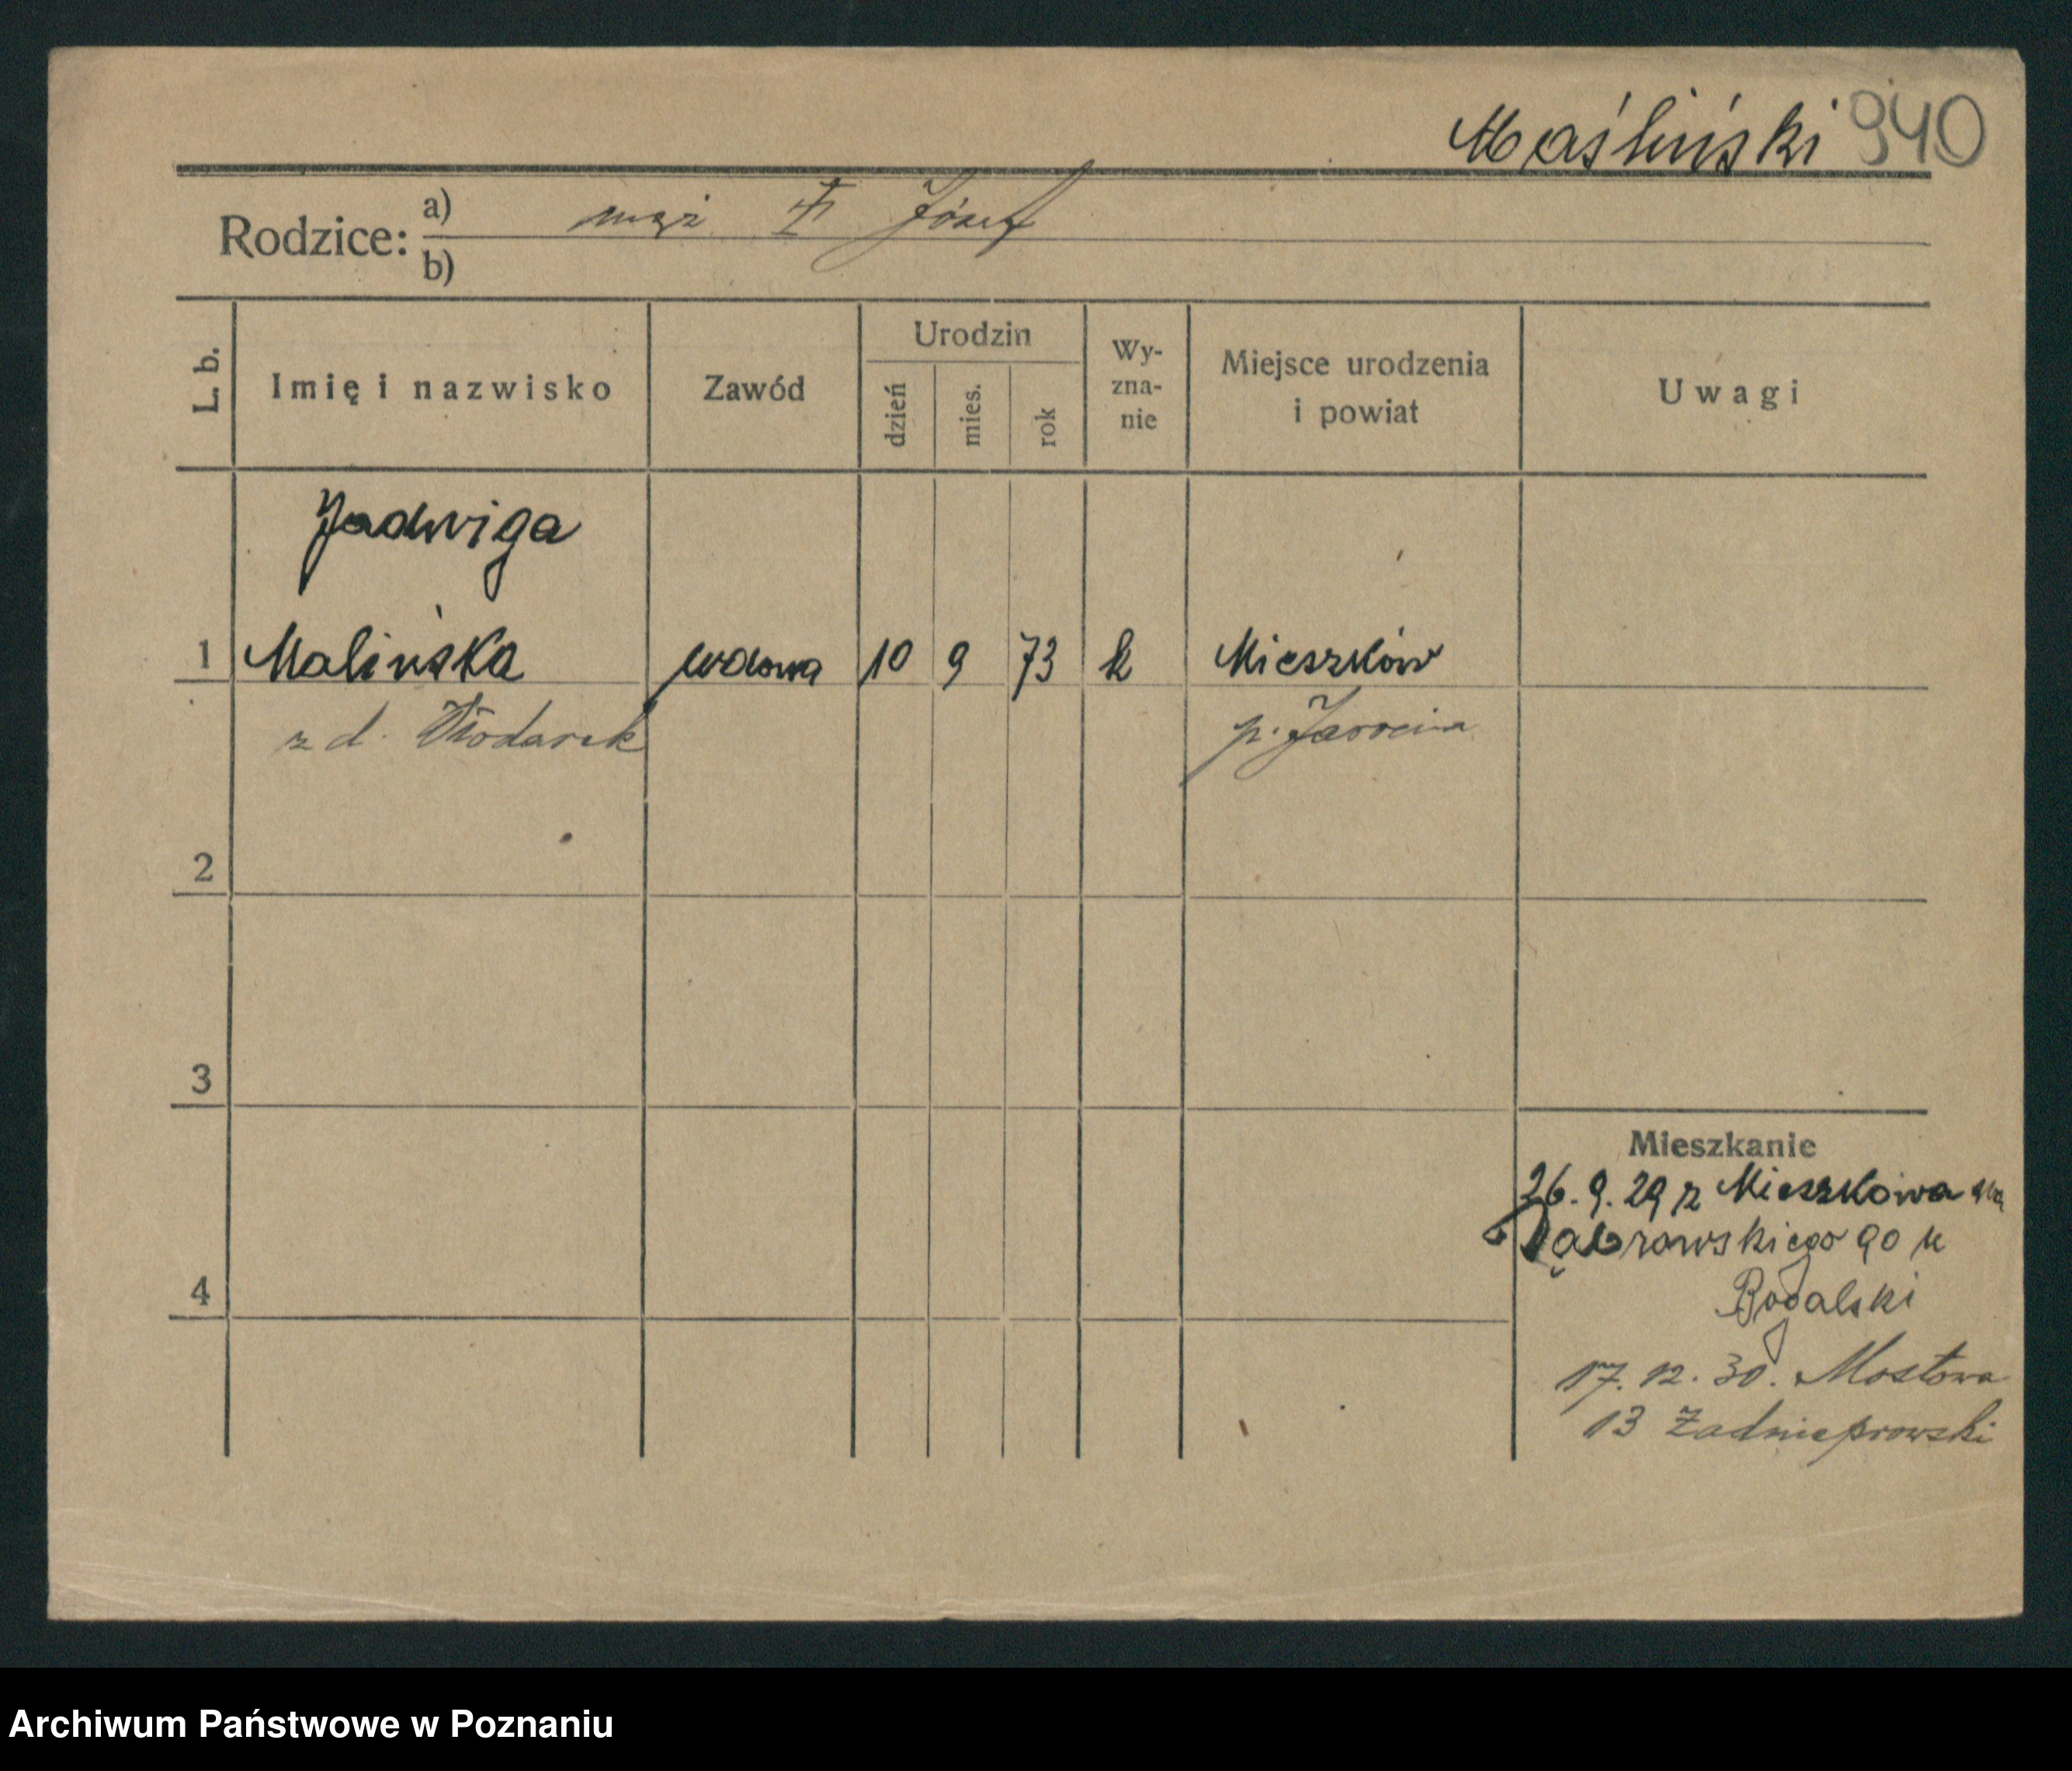 Maśliński 940
Rodzice: a) mąż † Józef
b)
L. b.
Imię i nazwisko
Zawód
Urodzin
dzień
mies.
rok
Wy-
zna-
nie
Miejsce urodzenia
i powiat
Uwagi
Jadwiga
1 Malińska wdowa 10 9 73 k Mieszków
z d. Włodarek p. Jarocin
2
3
Mieszkanie
26. 9. 29 z Mieszkowa
Dąbrowskiego 90 u
4
Rogalski
17. 12. 30. Mostowa
13 Zadnieprowski
Archiwum Państwowe w Poznaniu